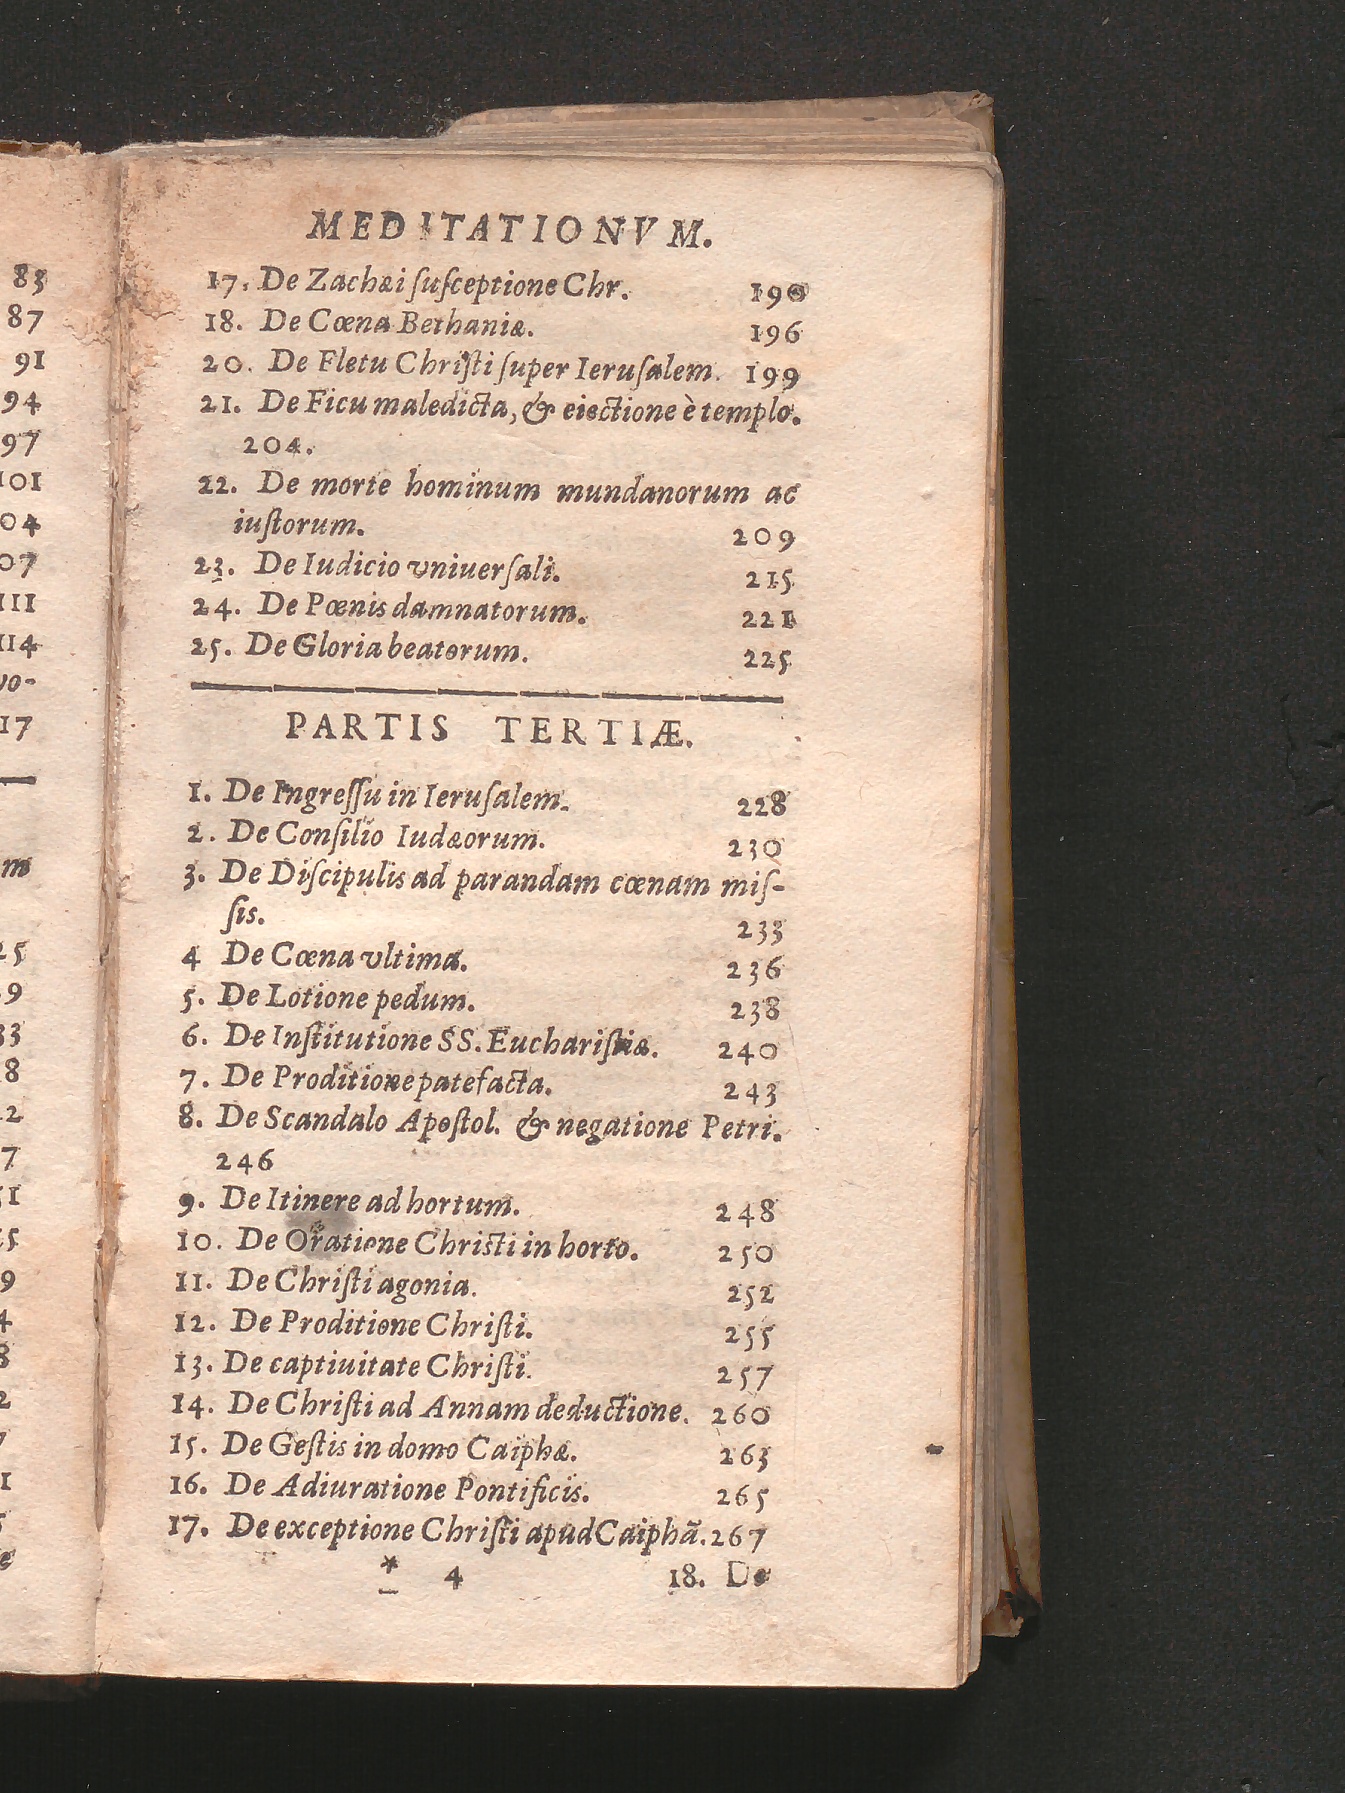 83
87
91
94
97
101
04
07
111
114
vo-
17
m
25
9
33
8
2
7
51
5
9
4
8
2
7
1
5
e
MEDITATIONVM.
17. De Zachæi ſuſceptione Chr. 190
18. De Cœna Bethaniæ. 196
20. De Fletu Chriſti ſuper Ieruſalem. 199
21. De Ficu maledicta, & eiectione è templo.
204.
22. De morte hominum mundanorum ac
iuſtorum. 209
23. De Iudicio vniuerſali. 215
24. De Pœnis damnatorum. 221
25. De Gloria beatorum. 225
PARTIS TERTIÆ.
1. De Ingreſſu in Ieruſalem. 228
2. De Conſilio Iudæorum. 230
3. De Diſcipulis ad parandam cœnam miſ-
ſis. 233
4 De Cœna vltima. 236
5. De Lotione pedum. 238
6. De Inſtitutione SS. Euchariſtiæ. 240
7. De Proditione patefacta. 243
8. De Scandalo Apoſtol. & negatione Petri.
246
9. De Itinere ad hortum. 248
10. De Oratione Christi in horto. 250
11. De Chriſti agonia. 252
12. De Proditione Chriſti. 255
13. De captiuitate Chriſti. 257
14. De Chriſti ad Annam deductione. 260
15. De Geſtis in domo Caiphæ. 263
16. De Adiuratione Pontificis. 265
17. De exceptione Chriſti apud Caiphã. 267
* 4 18. De